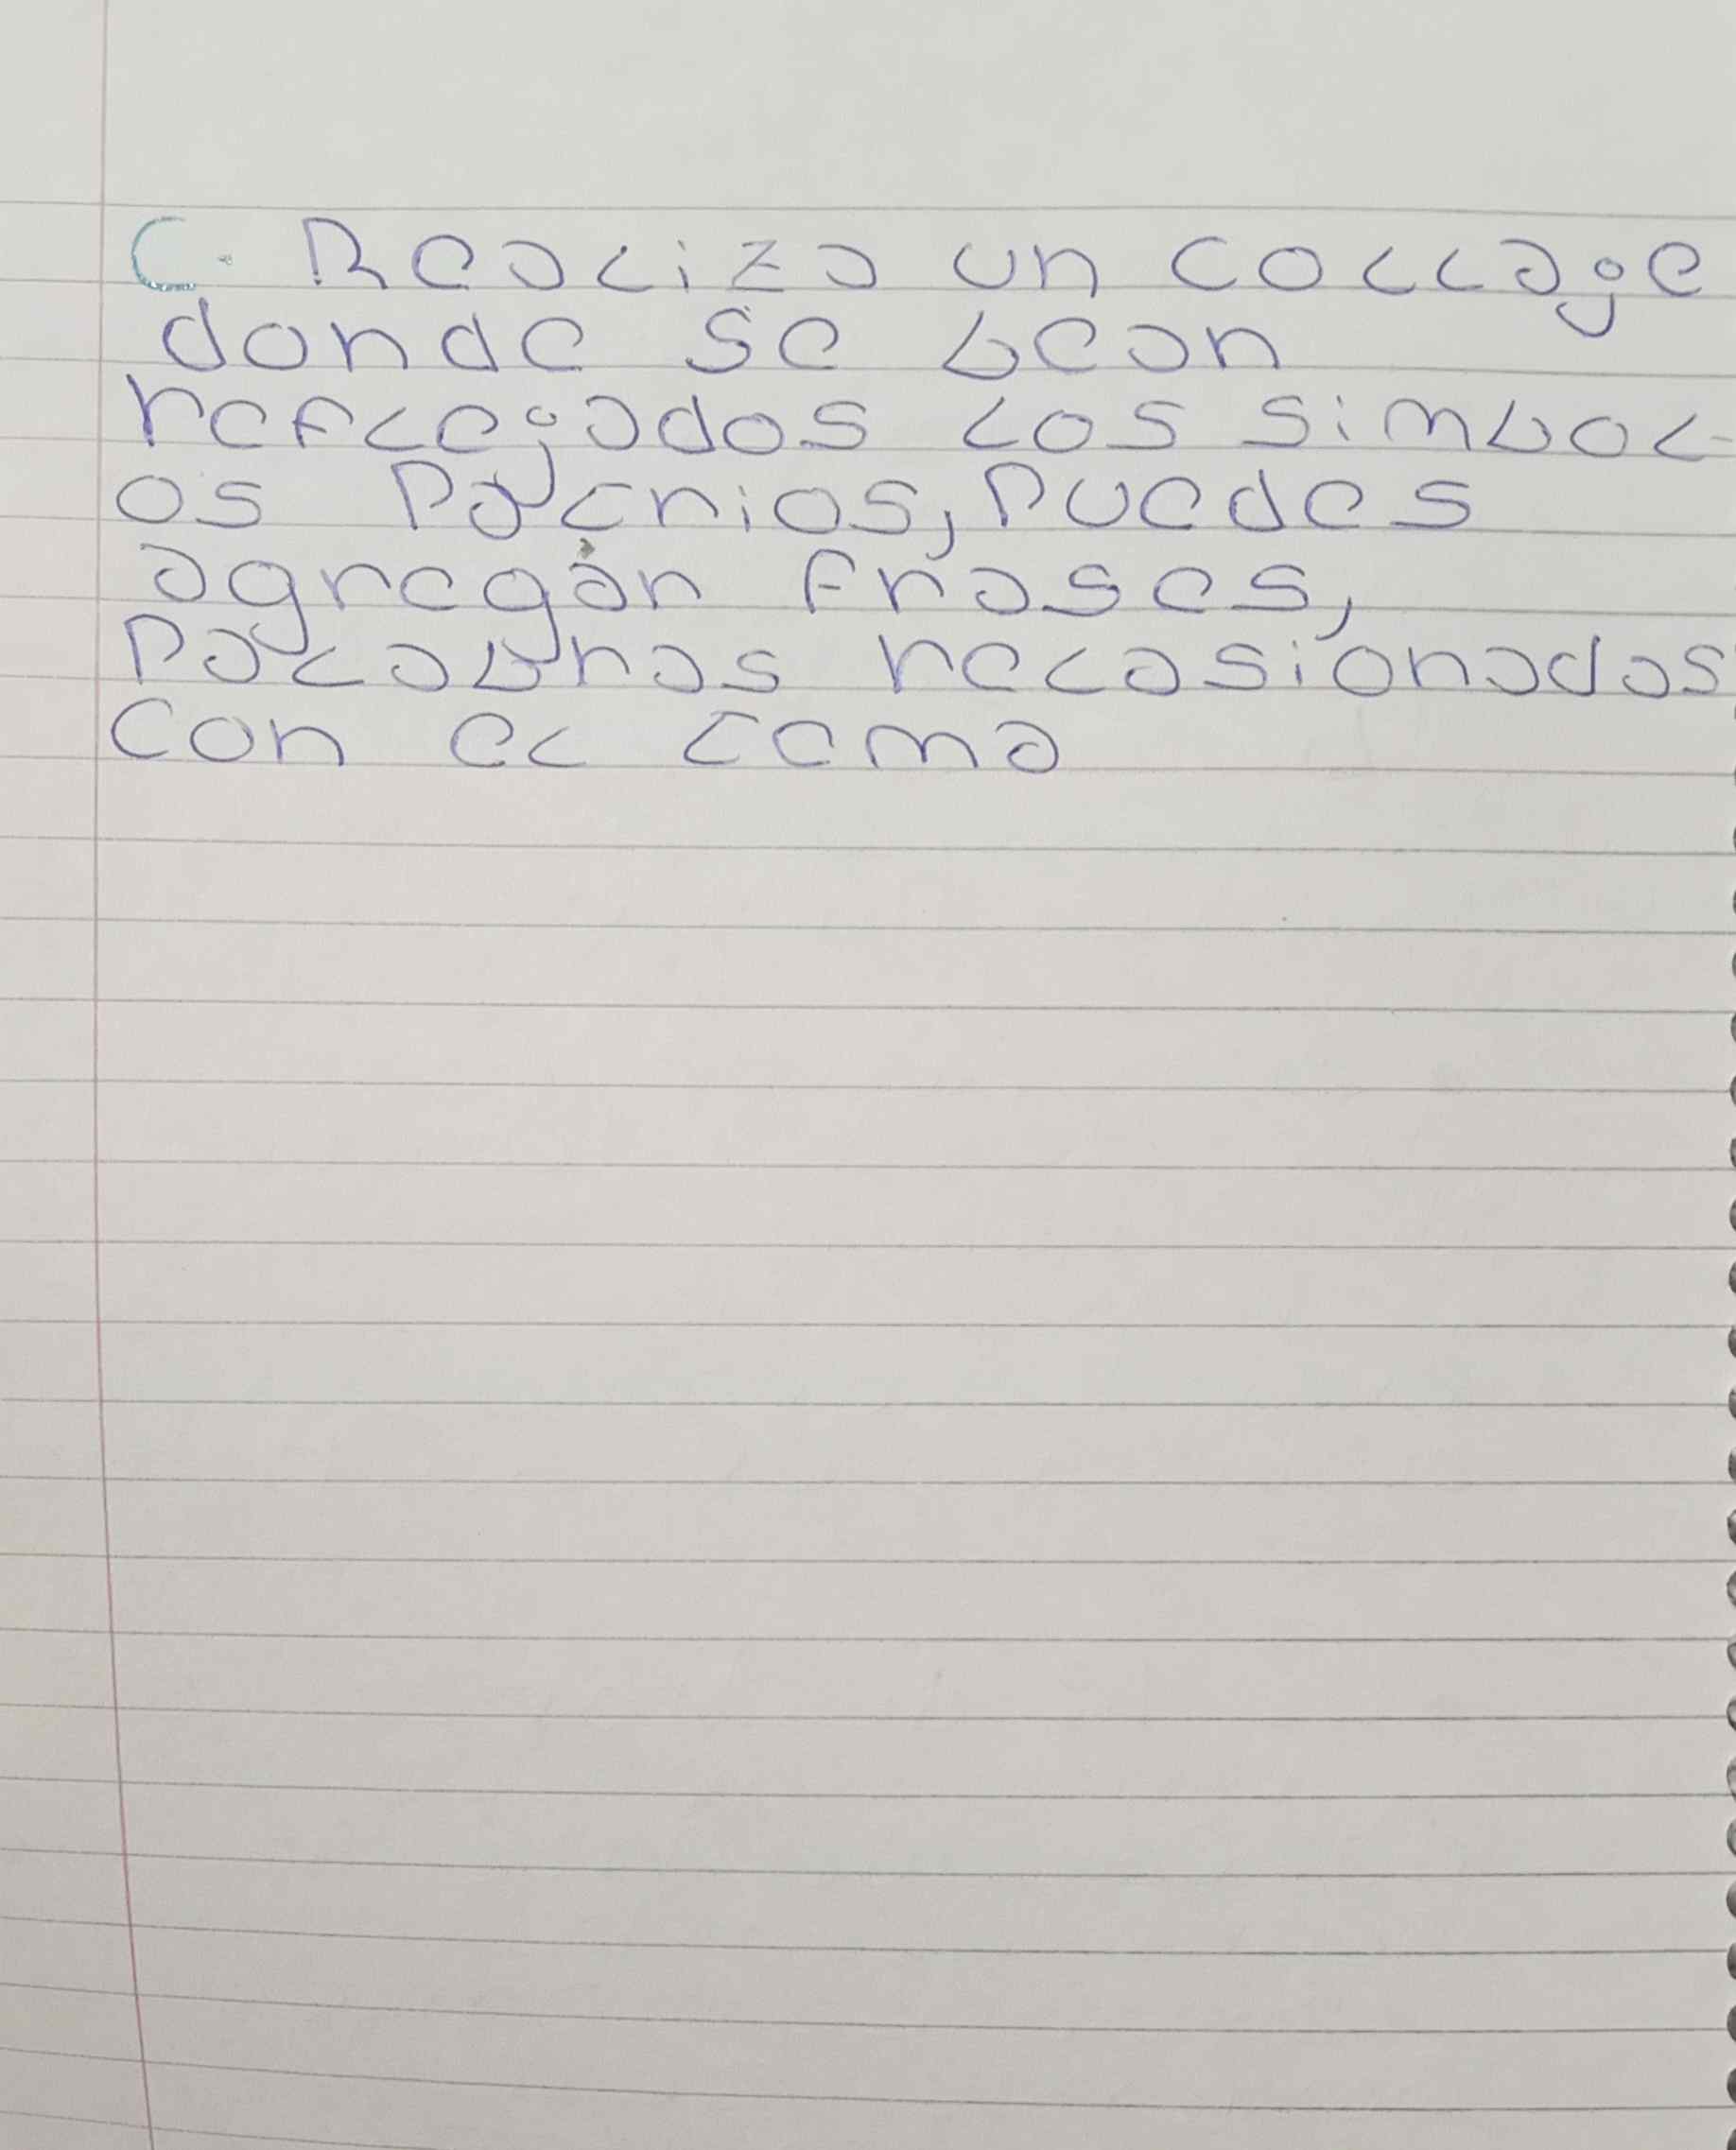 C. Realiza un collage
donde se bean
reflejados los simbol-
os Patrios, Puedes
agregar frases,
Palabras relasionadas
con el tema